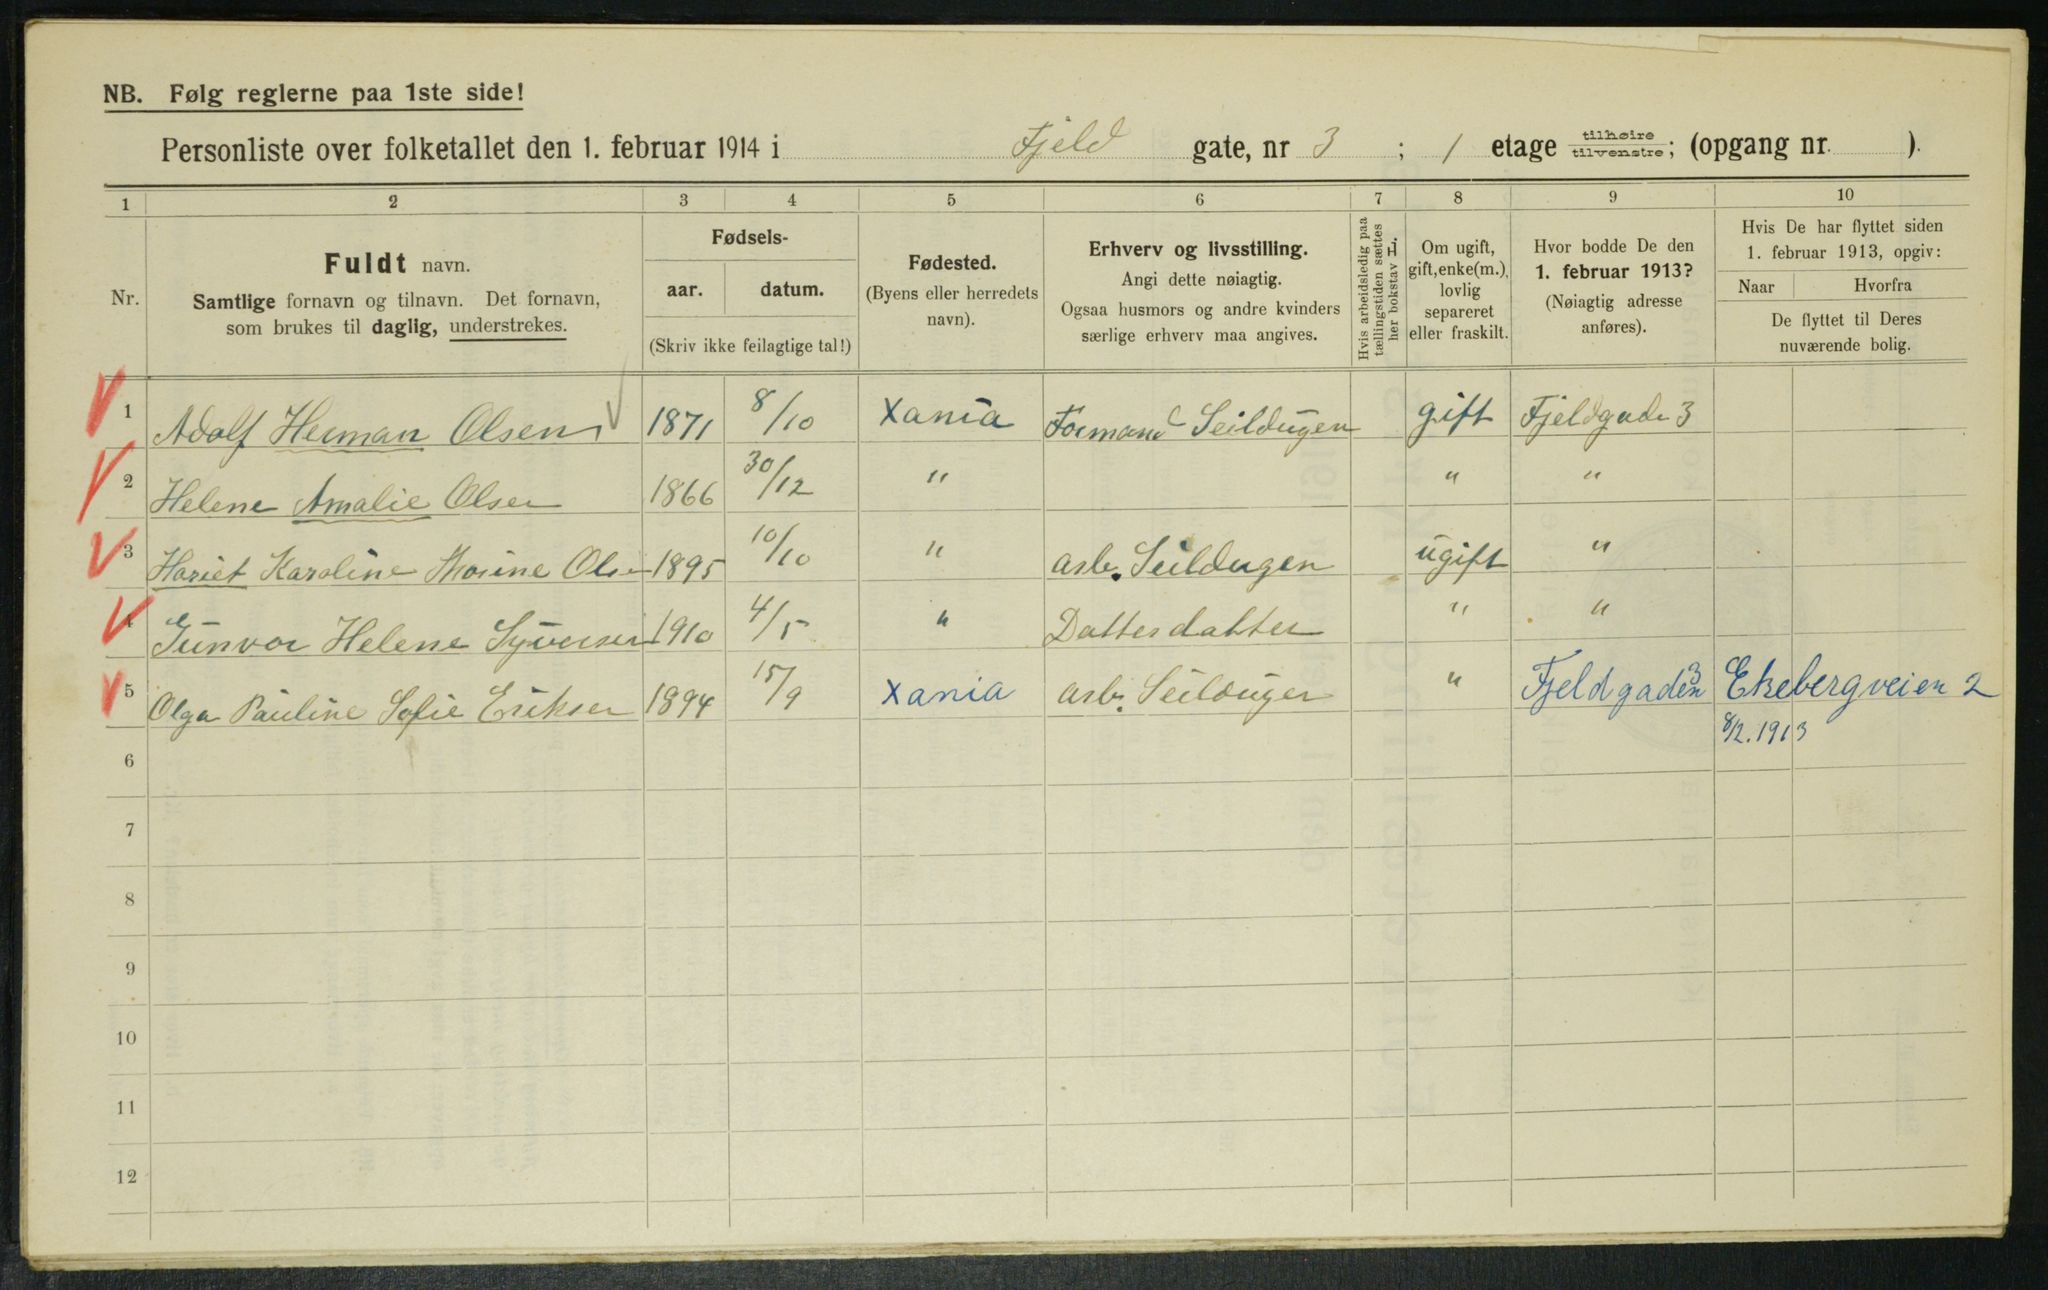 NB. Følg reglerne paa 1ste side!
Personliste over folketallet den 1. februar 1914 i Fjeld gate, nr 3 ; 1 etage tilhøire/tilvenstre; (opgang nr. ).
1 2 3 4 5 6 7 8 9 10
Nr.
Fuldt navn.
Samtlige fornavn og tilnavn. Det fornavn,
som brukes til daglig, understrekes.
Fødsels-
aar. datum.
(Skriv ikke feilagtige tal!)
Fødested.
(Byens eller herredets
navn).
Erhverv og livsstilling.
Angi dette nøiagtig.
Ogsaa husmors og andre kvinders
særlige erhverv maa angives.
Hvis arbeidsledig paa
tællingstiden sættes
her bokstav L.
Om ugift,
gift, enke(m.),
lovlig
separeret
eller fraskilt.
Hvor bodde De den
1. februar 1913?
(Nøiagtig adresse
anføres).
Hvis De har flyttet siden
1. februar 1913, opgiv:
Naar Hvorfra
De flyttet til Deres
nuværende bolig.
1 Adolf Herman Olsen 1871 8/10 Xania Formand Seildugen gift Fjeldgade 3
2 Helene Amalie Olsen 1866 30/12 " " "
3 Hariet Karoline Thorine Olsen 1895 10/10 " arb. Seildugen ugift "
4 Gunvor Helene Syversen 1910 4/5 " Datterdatter " "
5 Olga Pauline Sofie Eriksen 1894 15/9 Xania arb. Seilduger " Fjeldgaden 3 Ekebergveien 2
8/2. 1913
6
7
8
9
10
11
12